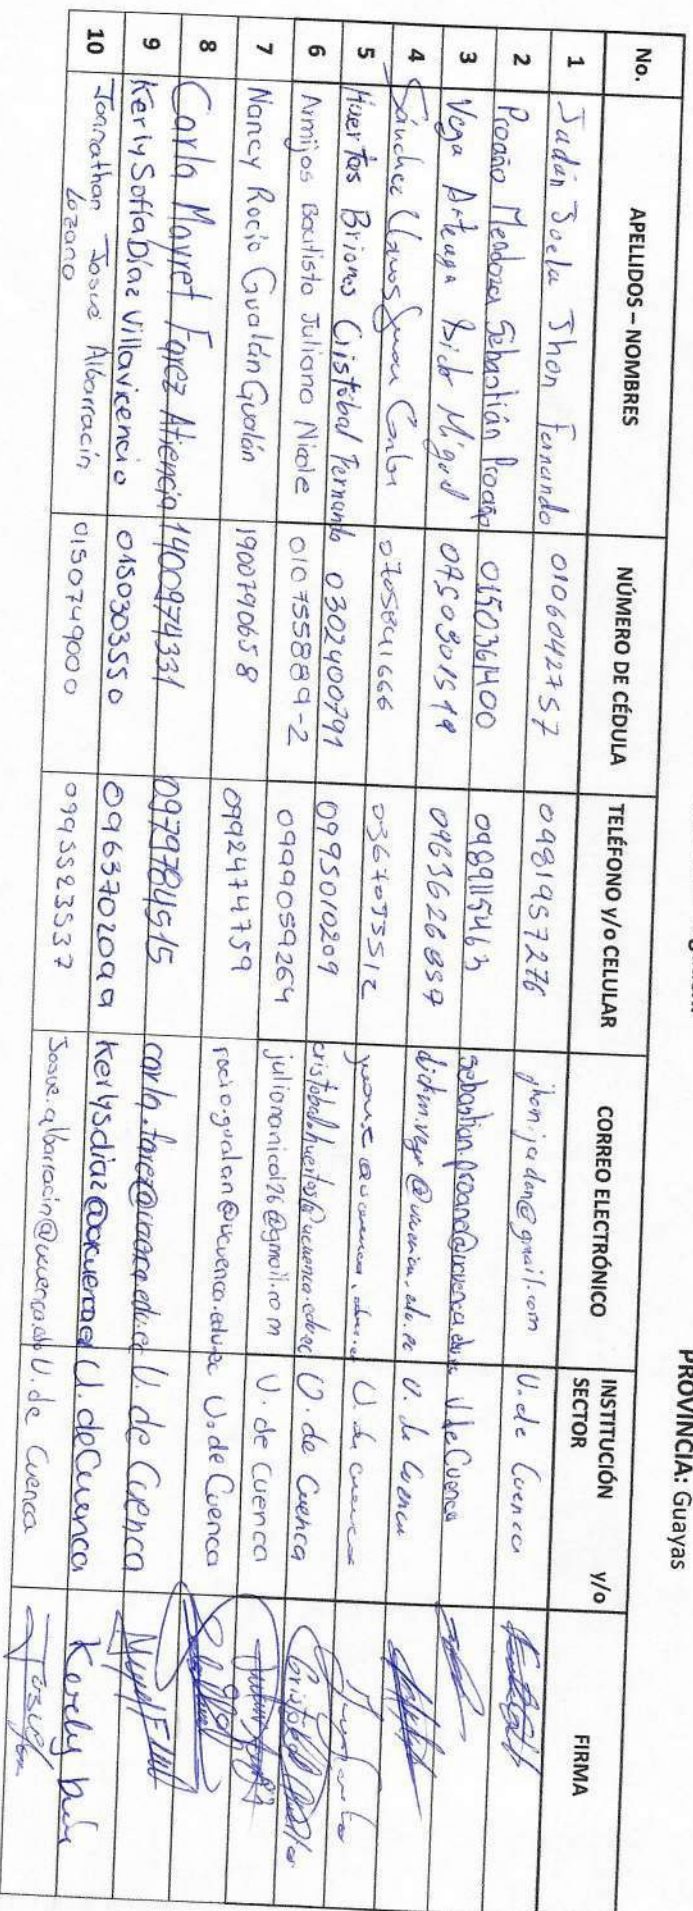 PROVINCIA: Guayas
No. APELLIDOS – NOMBRES NÚMERO DE CÉDULA TELÉFONO y/o CELULAR CORREO ELECTRÓNICO INSTITUCIÓN y/o SECTOR FIRMA
1 Jadán Jhon Fernando 0106042757 0981957276 jhon.jadan@gmail.com U. de Cuenca
2 Proaño Mendoza Sebastián Proaño 0150361400 0989115463 U de Cuenca
3 Vega Arteaga Miguel 0750901519 0963626857 U. de Cuenca
4 Sánchez Juan Carlos 0705841666 U. de Cuenca
5 Huertas Briones Cristóbal Fernando 0302400791 0995010209 cristobal.huertas@ucuenca.edu.ec U. de Cuenca Cristóbal
6 Armijos Bautista Juliana Nicole 010755889-2 0999059264 juliananicol26@gmail.com U. de Cuenca
7 Nancy Rocio Gualán Gualán 1900790658 0992474759 rocio.gualan@ucuenca.edu.ec U. de Cuenca
8 Carla Mayret Farez Atiencia 1400974331 0979784515 carla.farez@ucuenca.edu.ec U. de Cuenca
9 Kerly Sofía Díaz Villavicencio 0150303550 0963702099 U. de Cuenca Kerly
10 Jonnathan Josue Albarracín
Lozano 0150749000 0995523537 U. de Cuenca